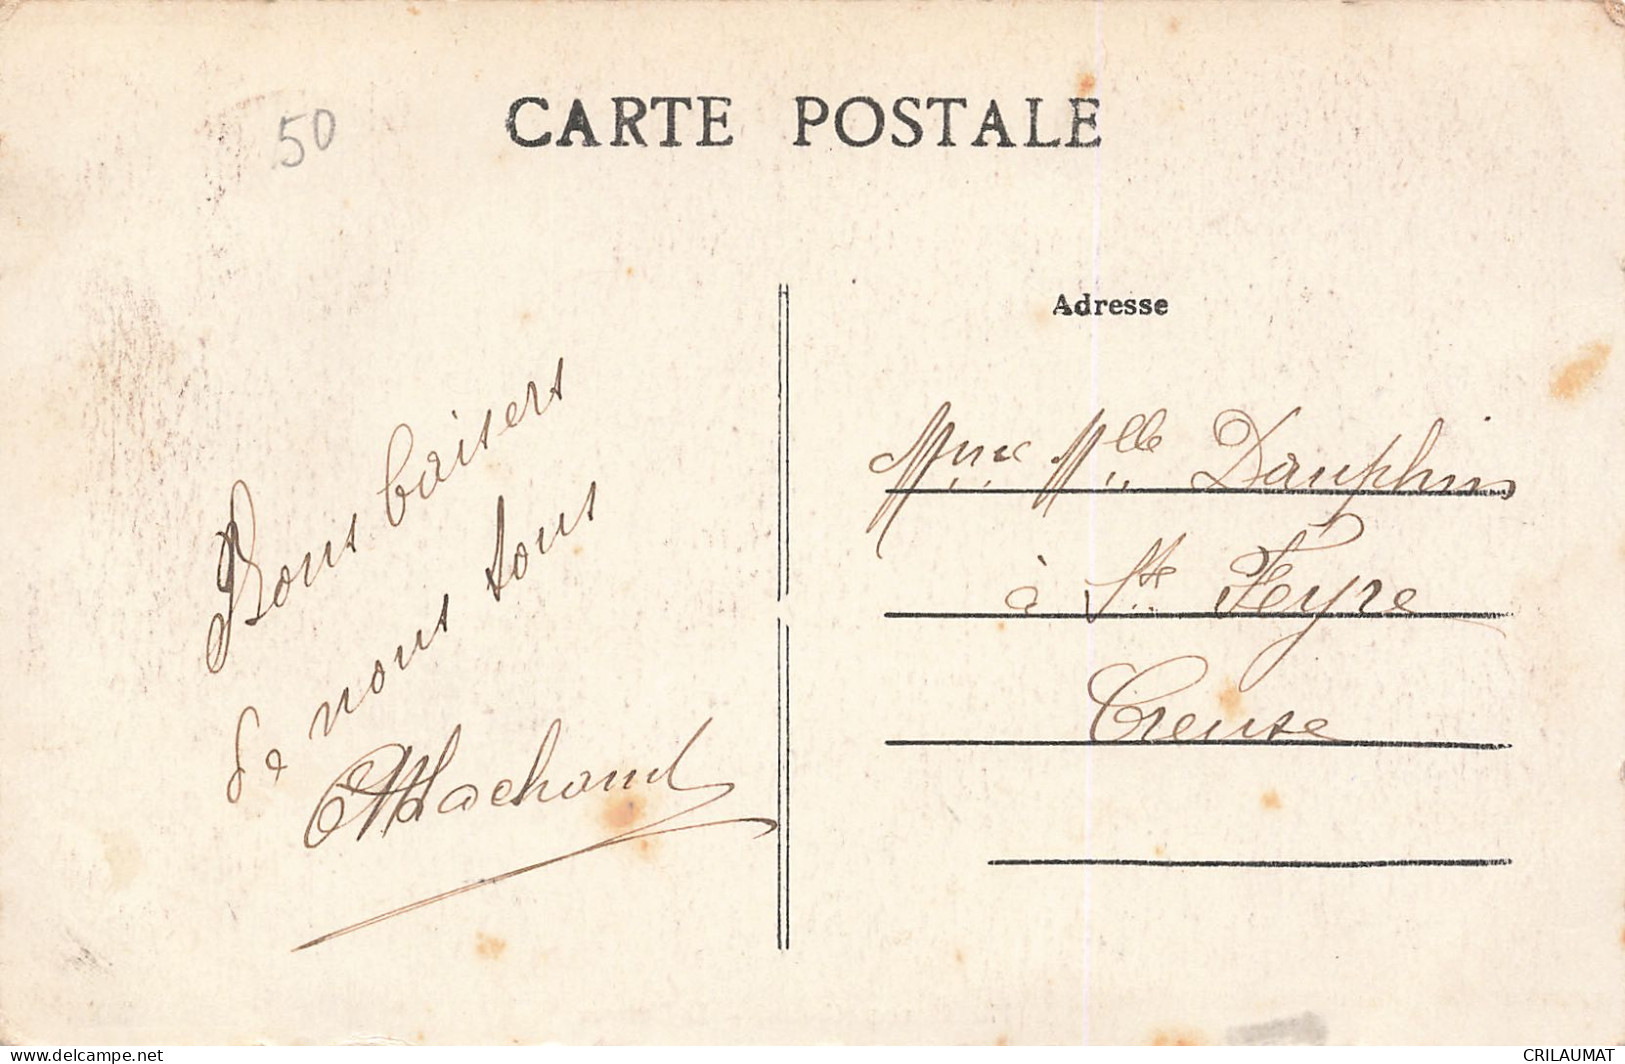 50
CARTE POSTALE
Bons baisers
de nous tous
Machaud
Adresse
Mme Mlle Dauphin
à Ste Feyre
Creuse
www.delcampe.net
CRILAUMAT